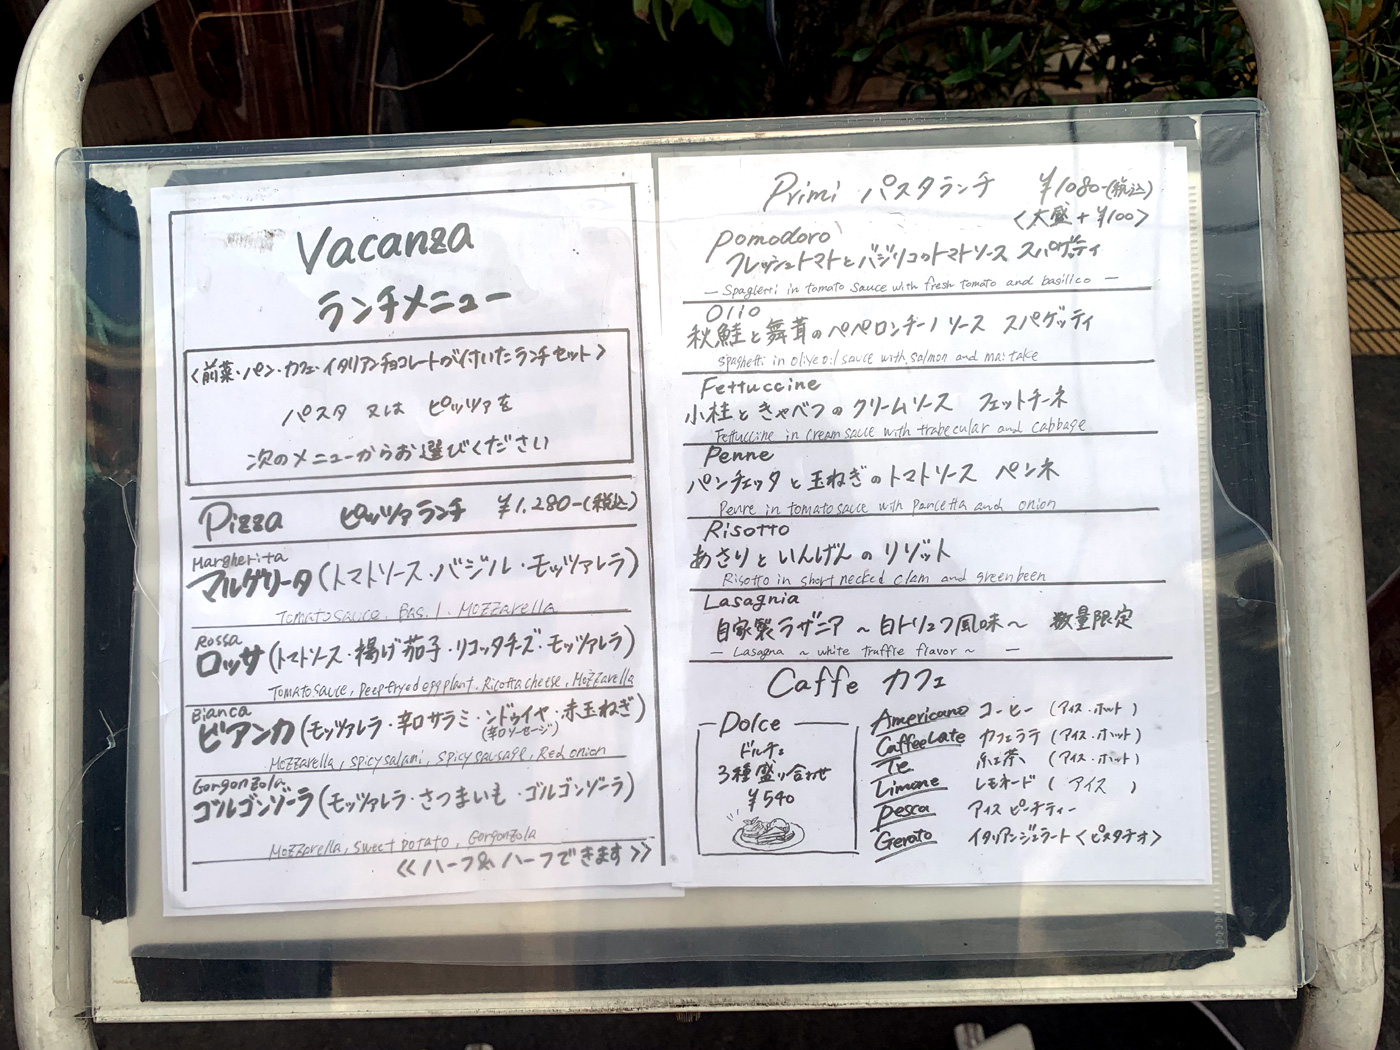 Vacanza
ランチメニュー
<前菜・パン・カフェ・イタリアンチョコレートが付いたランチセット>
パスタ 又は ピッツァを
次のメニューからお選びください
Pizza ピッツァランチ ¥1,280-(税込)
Margherita
マルゲリータ(トマトソース・バジル・モッツァレラ)
Tomato sauce, Basil, Mozzarella
Rossa
ロッサ(トマトソース・揚げ茄子・リコッタチーズ・モッツァレラ)
Tomato sauce, Deep fryed eggplant, Ricotta cheese, Mozzarella
Bianca
ビアンカ(モッツァレラ・辛口サラミ・ンドゥイヤ・赤玉ねぎ)
(辛口ソーセージ)
Mozzarella, spicy salami, spicy sausage, Red onion
Gorgonzola
ゴルゴンゾーラ(モッツァレラ・さつまいも・ゴルゴンゾーラ)
Mozzarella, sweet potato, Gorgonzola
<<ハーフ&ハーフできます>>
Primi パスタランチ ¥1080-(税込)
<大盛+¥100>
Pomodoro
フレッシュトマトとバジリコのトマトソース スパゲッティ
— Spagletti in tomato sauce with fresh tomato and basilico —
Olio
秋鮭と舞茸のペペロンチーノソース スパゲッティ
Spaghetti in olive oil sauce with salmon and maitake
Fettuccine
小柱ときゃべつのクリームソース フェットチーネ
Fettuccine in cream sauce with trabecular and cabbage
Penne
パンチェッタと玉ねぎのトマトソース ペンネ
Penne in tomato sauce with pancetta and onion
Risotto
あさりといんげんのリゾット
Risotto in short necked clam and green been
Lasagnia
自家製ラザニア ～白トリュフ風味～ 数量限定
— Lasagna ~ white truffle flavor ~ —
Caffe カフェ
Dolce
ドルチェ
3種盛り合わせ
¥540
Americano コーヒー (アイス・ホット)
CaffeeLate カフェラテ (アイス・ホット)
Te 紅茶 (アイス・ホット)
Limone レモネード ( アイス )
Pesca アイスピーチティー
Gerato イタリアンジェラート<ピスタチオ>